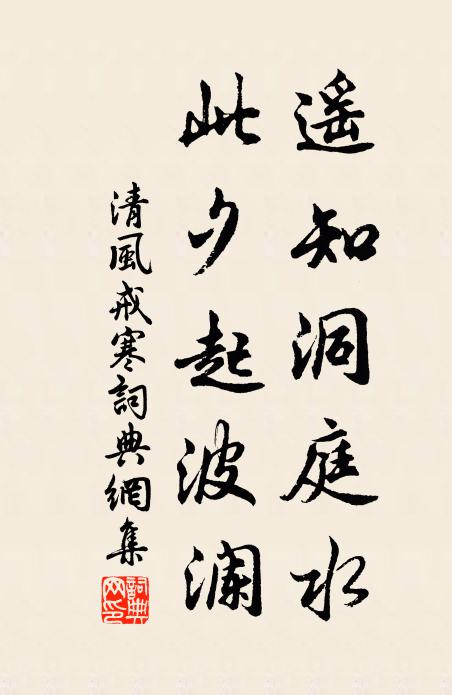 遥知洞庭水
此夕起波澜
清風戒寒詞典網集
詞典網印